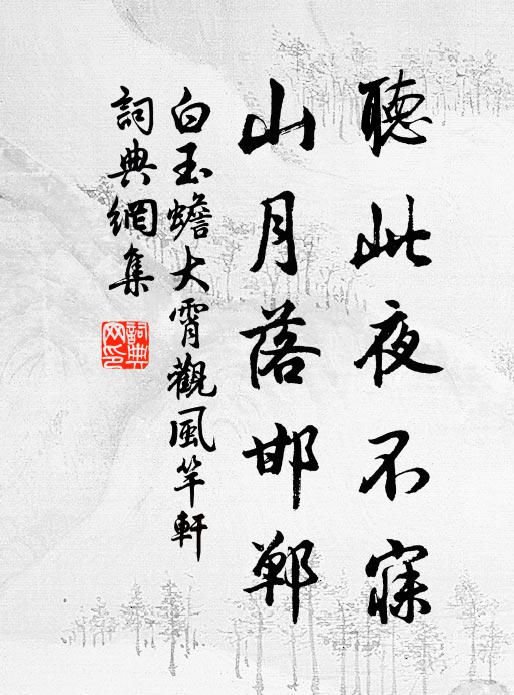 聽此夜不寐
山月落邯鄲
白玉蟾大霄觀風竿軒
詞典網集
詞典網印